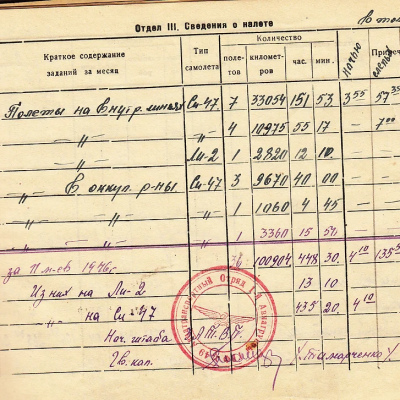 Отдел III. Сведения о налете
Краткое содержание заданий за месяц Тип самолета Количество полетов километров час. мин. Ночью
Полеты на внутр. линиях Си-47 7 33054 151 53 3 55 57 35
-"- -"- 4 10975 55 17 7 00
-"- Ли-2 1 2820 12 10
-"- В оккуп. р-ны Си-47 3 9670 40 00
-"- -"- 1 1060 4 45
-"- -"- 1 3360 15 54
за 11 м-цев 1946г. 100904 448 30 4 10 135
Из них на Ли-2 13 10
-"- на Си-47 435 20 4 10
Нач. штаба А.Т.В.П.
Гв. кап. Х. Тимарченко Х